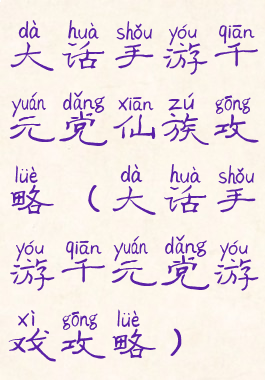 dà huà shǒu yóu qiān
大话手游千
yuán dǎng xiān zú gōng
元党仙族攻
lüè dà huà shǒu
略（大话手
yóu qiān yuán dǎng yóu
游千元党游
xì gōng lüè
戏攻略）